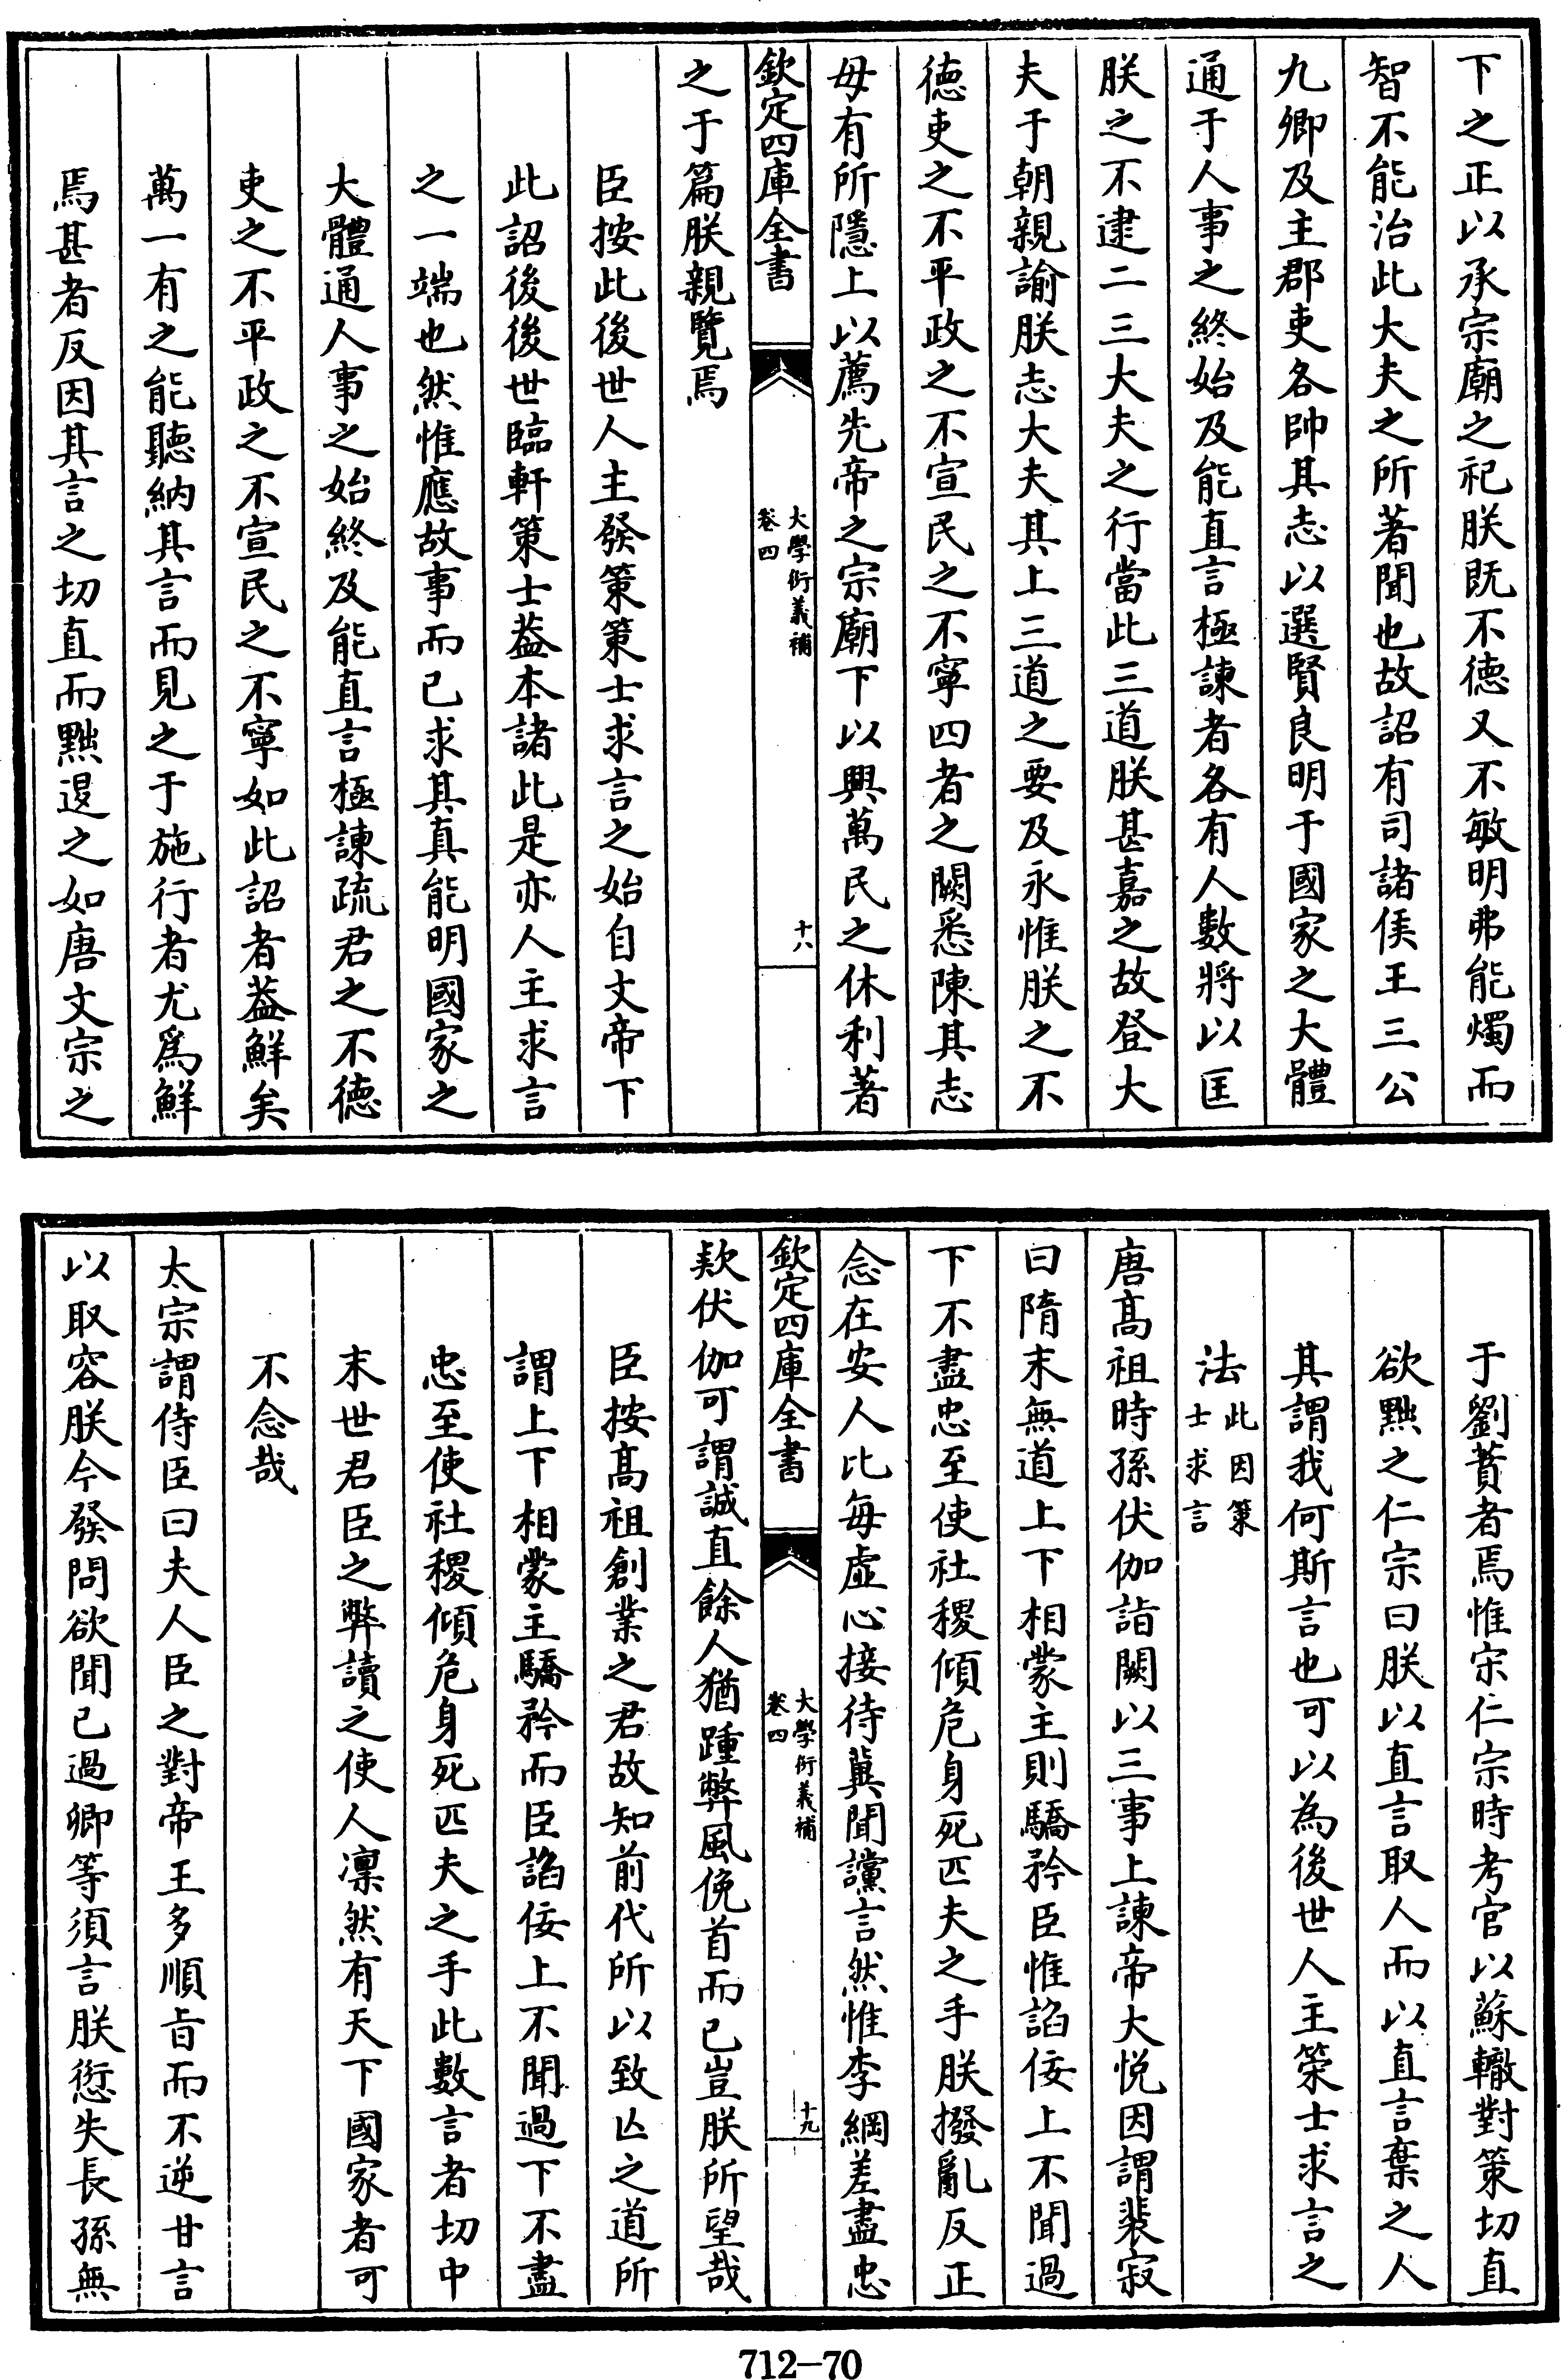 下之正以承宗廟之祀朕既不德又不敏明弗能燭而
智不能治此大夫之所著聞也故詔有司諸侯王三公
九卿及主郡吏各帥其志以選賢良明于國家之大體
通于人事之終始及能直言極諫者各有人數將以匡
朕之不逮二三大夫之行當此三道朕甚嘉之故登大
夫于朝親諭朕志大夫其上三道之要及永惟朕之不
德吏之不平政之不宣民之不寧四者之闕悉陳其志
毋有所隱上以薦先帝之宗廟下以興萬民之休利著
欽定四庫全書
大學衍義補
卷四
十八
之于篇朕親覽焉
臣按此後世人主發策策士求言之始自文帝下
此詔後後世臨軒策士葢本諸此是亦人主求言
之一端也然惟應故事而已求其真能明國家之
大體通人事之始終及能直言極諫疏君之不德
吏之不平政之不宣民之不寧如此詔者葢鮮矣
萬一有之能聽納其言而見之于施行者尤爲鮮
焉甚者反因其言之切直而黜退之如唐文宗之
于劉蕡者焉惟宋仁宗時考官以蘇轍對策切直
欲黜之仁宗曰朕以直言取人而以直言棄之人
其謂我何斯言也可以為後世人主策士求言之
法此因策
士求言
唐高祖時孫伏伽詣闕以三事上諫帝大悅因謂裴寂
曰隋末無道上下相蒙主則驕矜臣惟諂佞上不聞過
下不盡忠至使社稷傾危身死匹夫之手朕撥亂反正
念在安人比每虛心接待冀聞讜言然惟李綱差盡忠
欽定四庫全書
大學衍義補
卷四
十九
欵伏伽可謂誠直餘人猶踵弊風俛首而已豈朕所望哉
臣按高祖創業之君故知前代所以致亾之道所
謂上下相蒙主驕矜而臣諂佞上不聞過下不盡
忠至使社稷傾危身死匹夫之手此數言者切中
末世君臣之弊讀之使人凛然有天下國家者可
不念哉
太宗謂侍臣曰夫人臣之對帝王多順旨而不逆甘言
以取容朕今發問欲聞已過卿等須言朕愆失長孫無
712—70